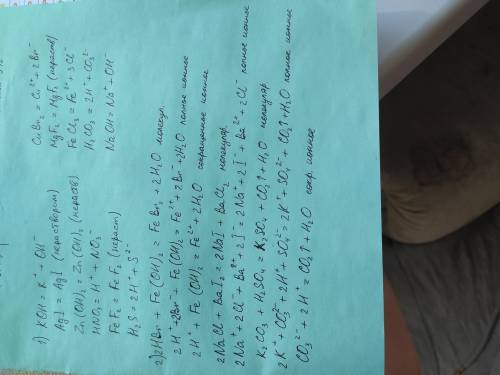 1) KOH = K⁺ + OH⁻
AgI = AgI (нерастворим)
Zn(OH)₂ = Zn(OH)₂ (нераств)
HNO₃ = H⁺ + NO₃⁻
FeF₂ = FeF₂ (нераст)
H₂S = 2H⁺ + S²⁻
CuBr₂ = Cu²⁺ + 2Br⁻
MgF₂ = MgF₂ (нераств)
FeCl₃ = Fe³⁺ + 3Cl⁻
H₂CO₃ = 2H⁺ + CO₃²⁻
NaOH = Na⁺ + OH⁻
2) 2HBr + Fe(OH)₂ = FeBr₂ + 2H₂O молекул.
2H⁺ + 2Br⁻ + Fe(OH)₂ = Fe²⁺ + 2Br⁻ + 2H₂O полное ионное
2H⁺ + Fe(OH)₂ = Fe²⁺ + 2H₂O сокращенное ионное
2NaCl + BaI₂ = 2NaI + BaCl₂ молекуляр.
2Na⁺ + 2Cl⁻ + Ba²⁺ + 2I⁻ = 2Na⁺ + 2I⁻ + Ba²⁺ + 2Cl⁻ полное ионное
K₂CO₃ + H₂SO₄ = K₂SO₄ + CO₂↑ + H₂O молекуляр.
2K⁺ + CO₃²⁻ + 2H⁺ + SO₄²⁻ = 2K⁺ + SO₄²⁻ + CO₂↑ + H₂O полное ионное
CO₃²⁻ + 2H = CO₂↑ + H₂O сокр. ионное